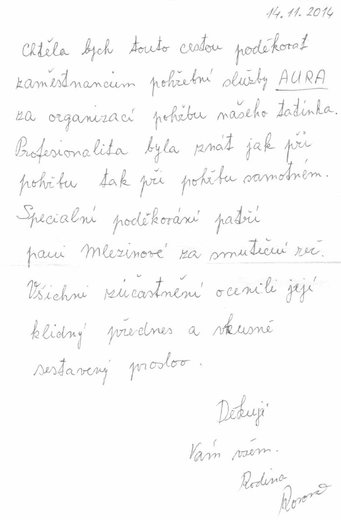 14.11.2014
Chtěla bych touto cestou poděkovat
zaměstnancům pohřební služby AURA
za organizaci pohřbu našeho tatínka.
Profesionalita byla znát jak při
pohřbu tak při pohřbu samotném.
Speciální poděkování patří
paní Mlezivové za smuteční řeč.
Všichni zúčastnění ocenili její
klidný přednes a vkusně
sestavený proslov.
Děkuji
Vám všem.
Rodina